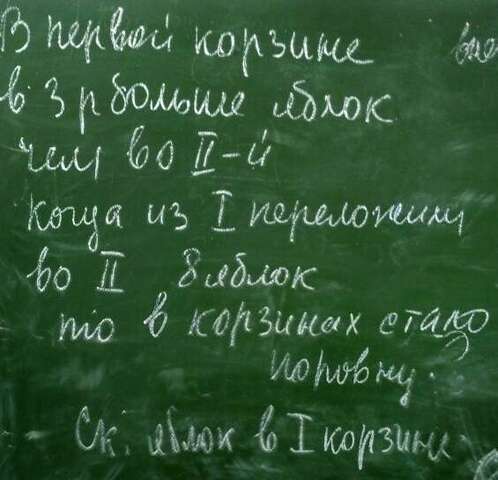 В первой корзине
в 3 р больше яблок
чем во II-й
когда из I переложили
во II 8 яблок
то в корзинах стало
поровну.
Ск. яблок в I корзине